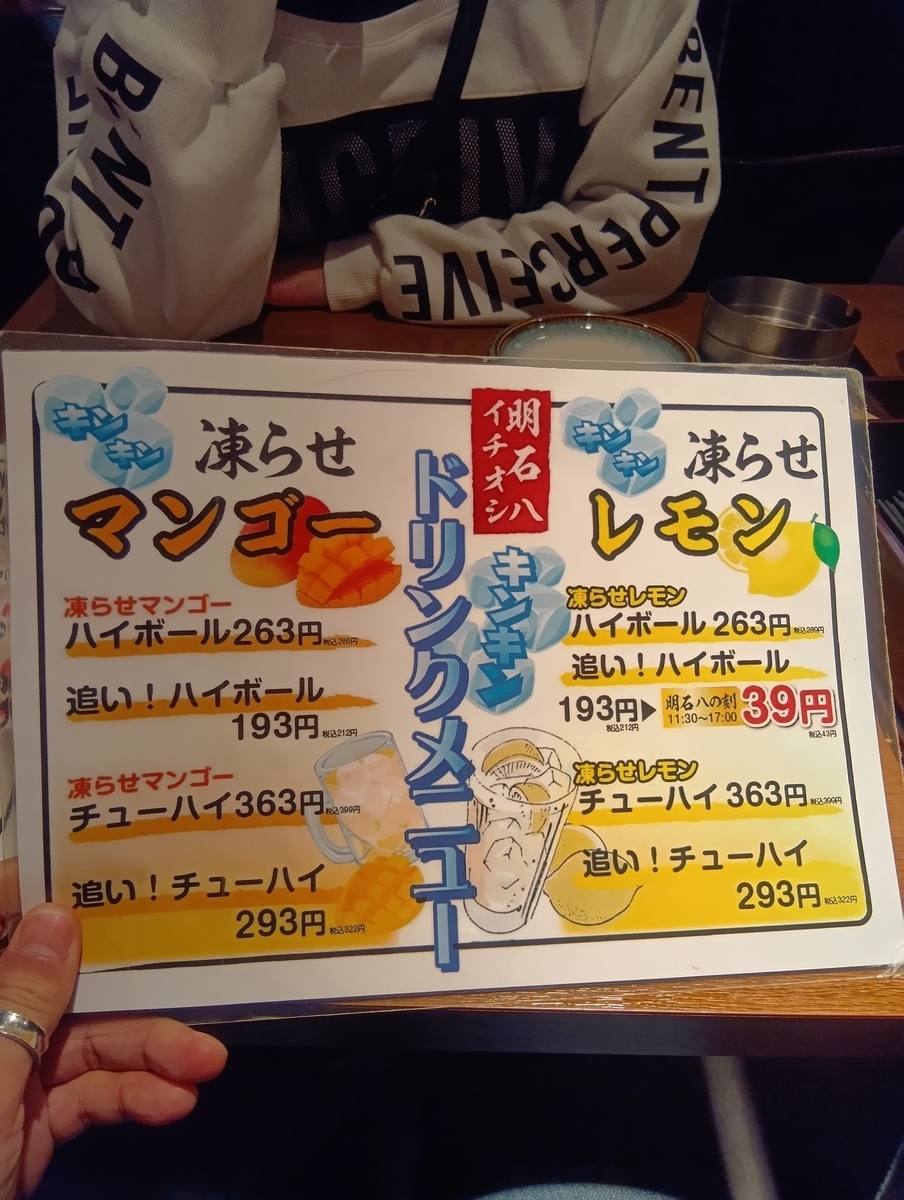 PERCEIVE
キンキン
凍らせ
マンゴー
凍らせマンゴー
ハイボール263円 税込289円
追い！ハイボール
193円 税込212円
凍らせマンゴー
チューハイ363円 税込399円
追い！チューハイ
293円 税込322円
明石八
イチオシ
キンキン
ドリンクメニュー
キンキン
凍らせ
レモン
凍らせレモン
ハイボール 263円 税込289円
追い！ハイボール
193円 税込212円 ▶ 明石八の刻 11:30～17:00 39円 税込43円
凍らせレモン
チューハイ 363円 税込399円
追い！チューハイ
293円 税込322円